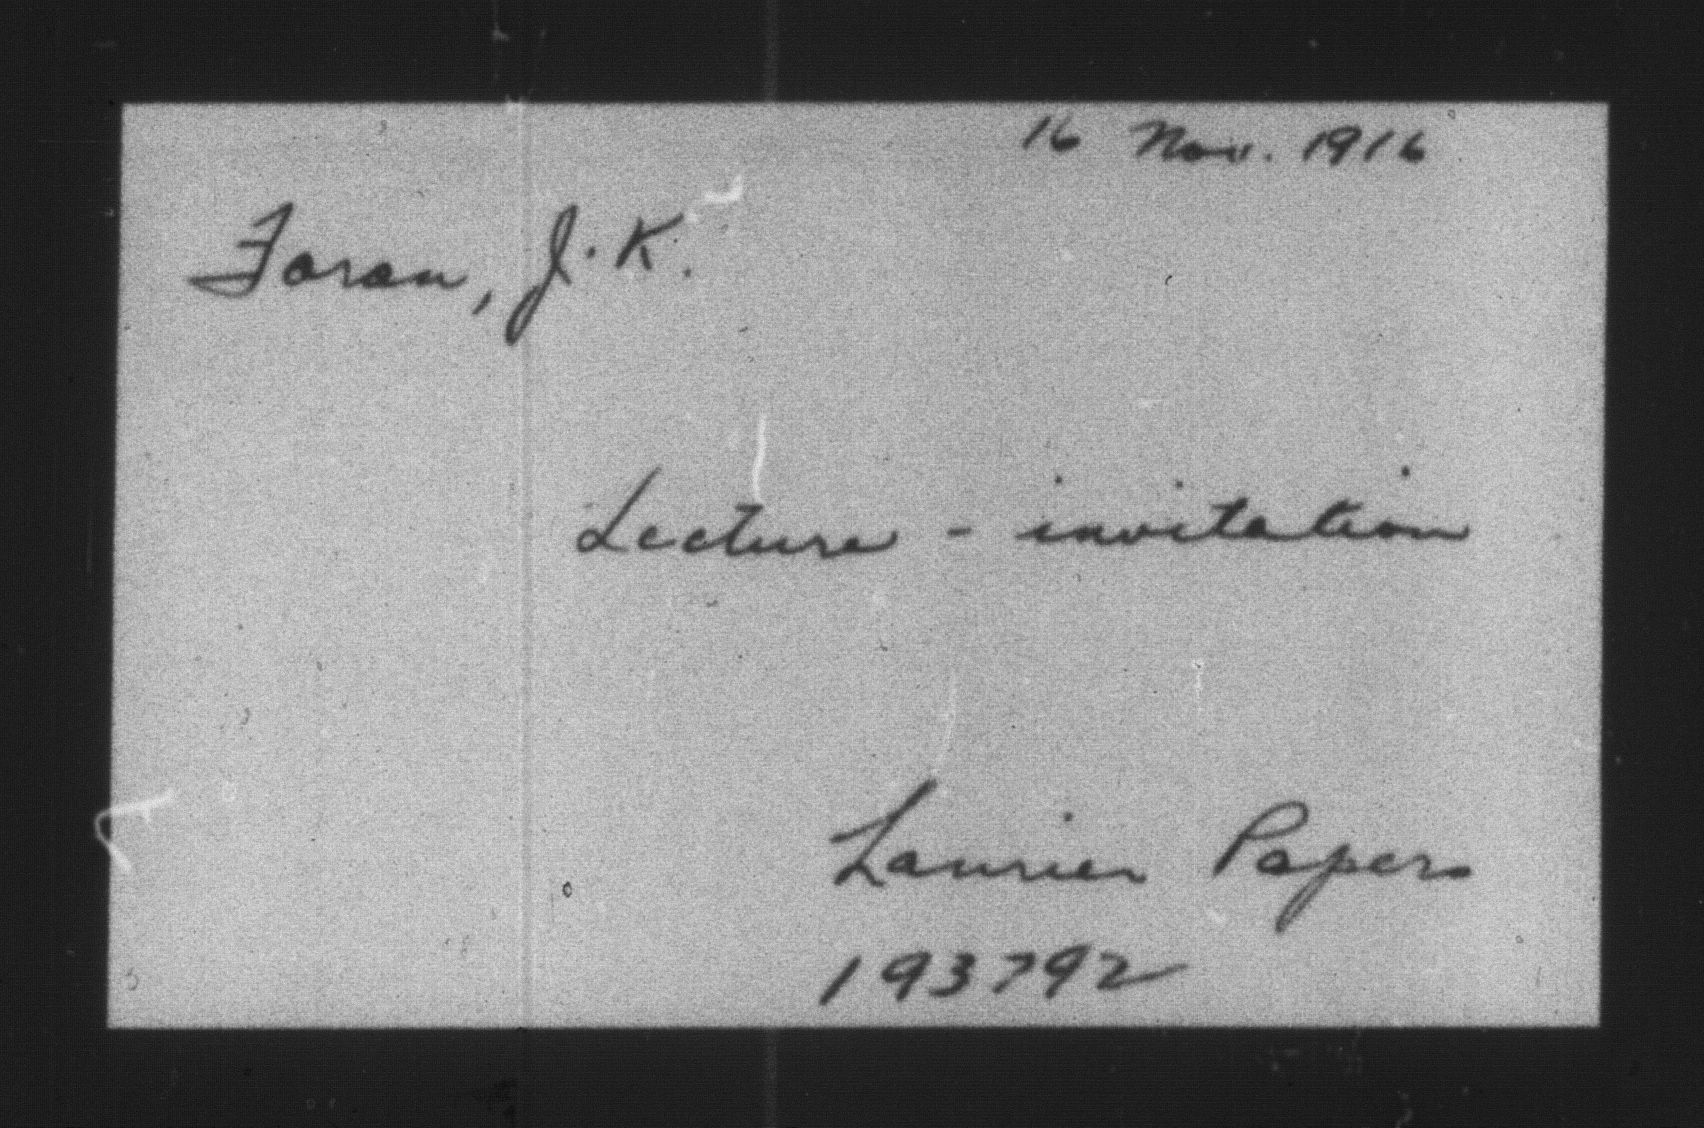 16 Nov. 1916
Foran, J. K.
Lecture - invitation
Laurier Papers
193792